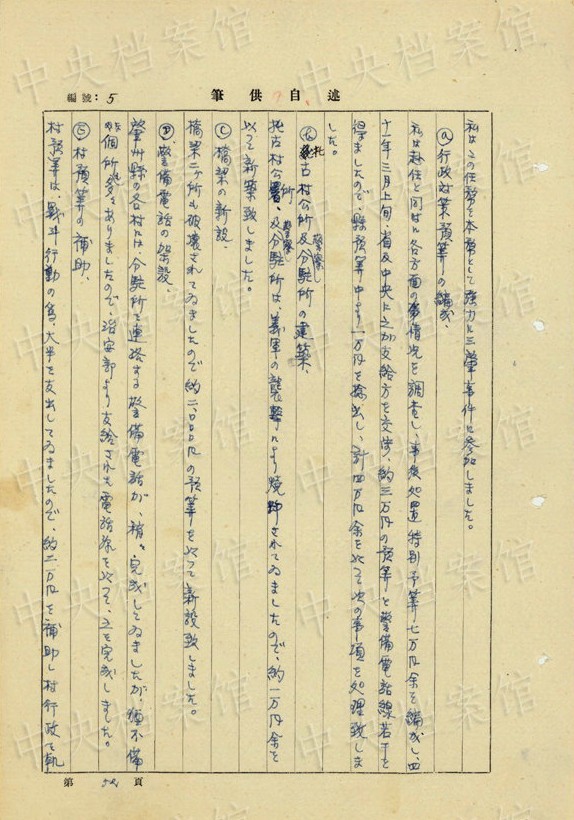 述自供筆
編號：5
私は この任務を本第として強力に三肇事件に参加しました。
ⓐ 行政対策予算の編成、
私は赴任と同時に各方面の事情況を調査し、事後処置特別予算七万円余を編成し、四
十一年三月上旬、省及中央に之が支給方を交渉、約三万円の予算と警備電話線若干を
得ましたので、縣預算中より一万円を捻出し、計四万円余を以って次の事項を処理致しま
した。
ⓑ 托古村公所及警察分駐所の建築、
托古村公所及警察分駐所は、義軍の襲撃により焼却されてゐましたので、約一万円余を
以って新築致しました。
ⓒ 橋梁の新設、
橋梁二ヶ所も破壊されてゐましたので約二、〇〇〇円の預算を以って新設致しました。
ⓓ 警備電話の架設、
肇州縣の各村には分駐所を連絡する警備電話が、稍々完成してゐましたが、個所多々ありましたので、治安部より支給された電話線を以って、之を完成しました。
ⓔ 村預算の補助、
村預算は、戦斗行動の為、大半を支出してゐましたので、約二万円を補助し村行政を執
第 頁
中央档案馆
中央档案馆
中央档案馆
中央档案馆
中央档案馆
中央档案馆